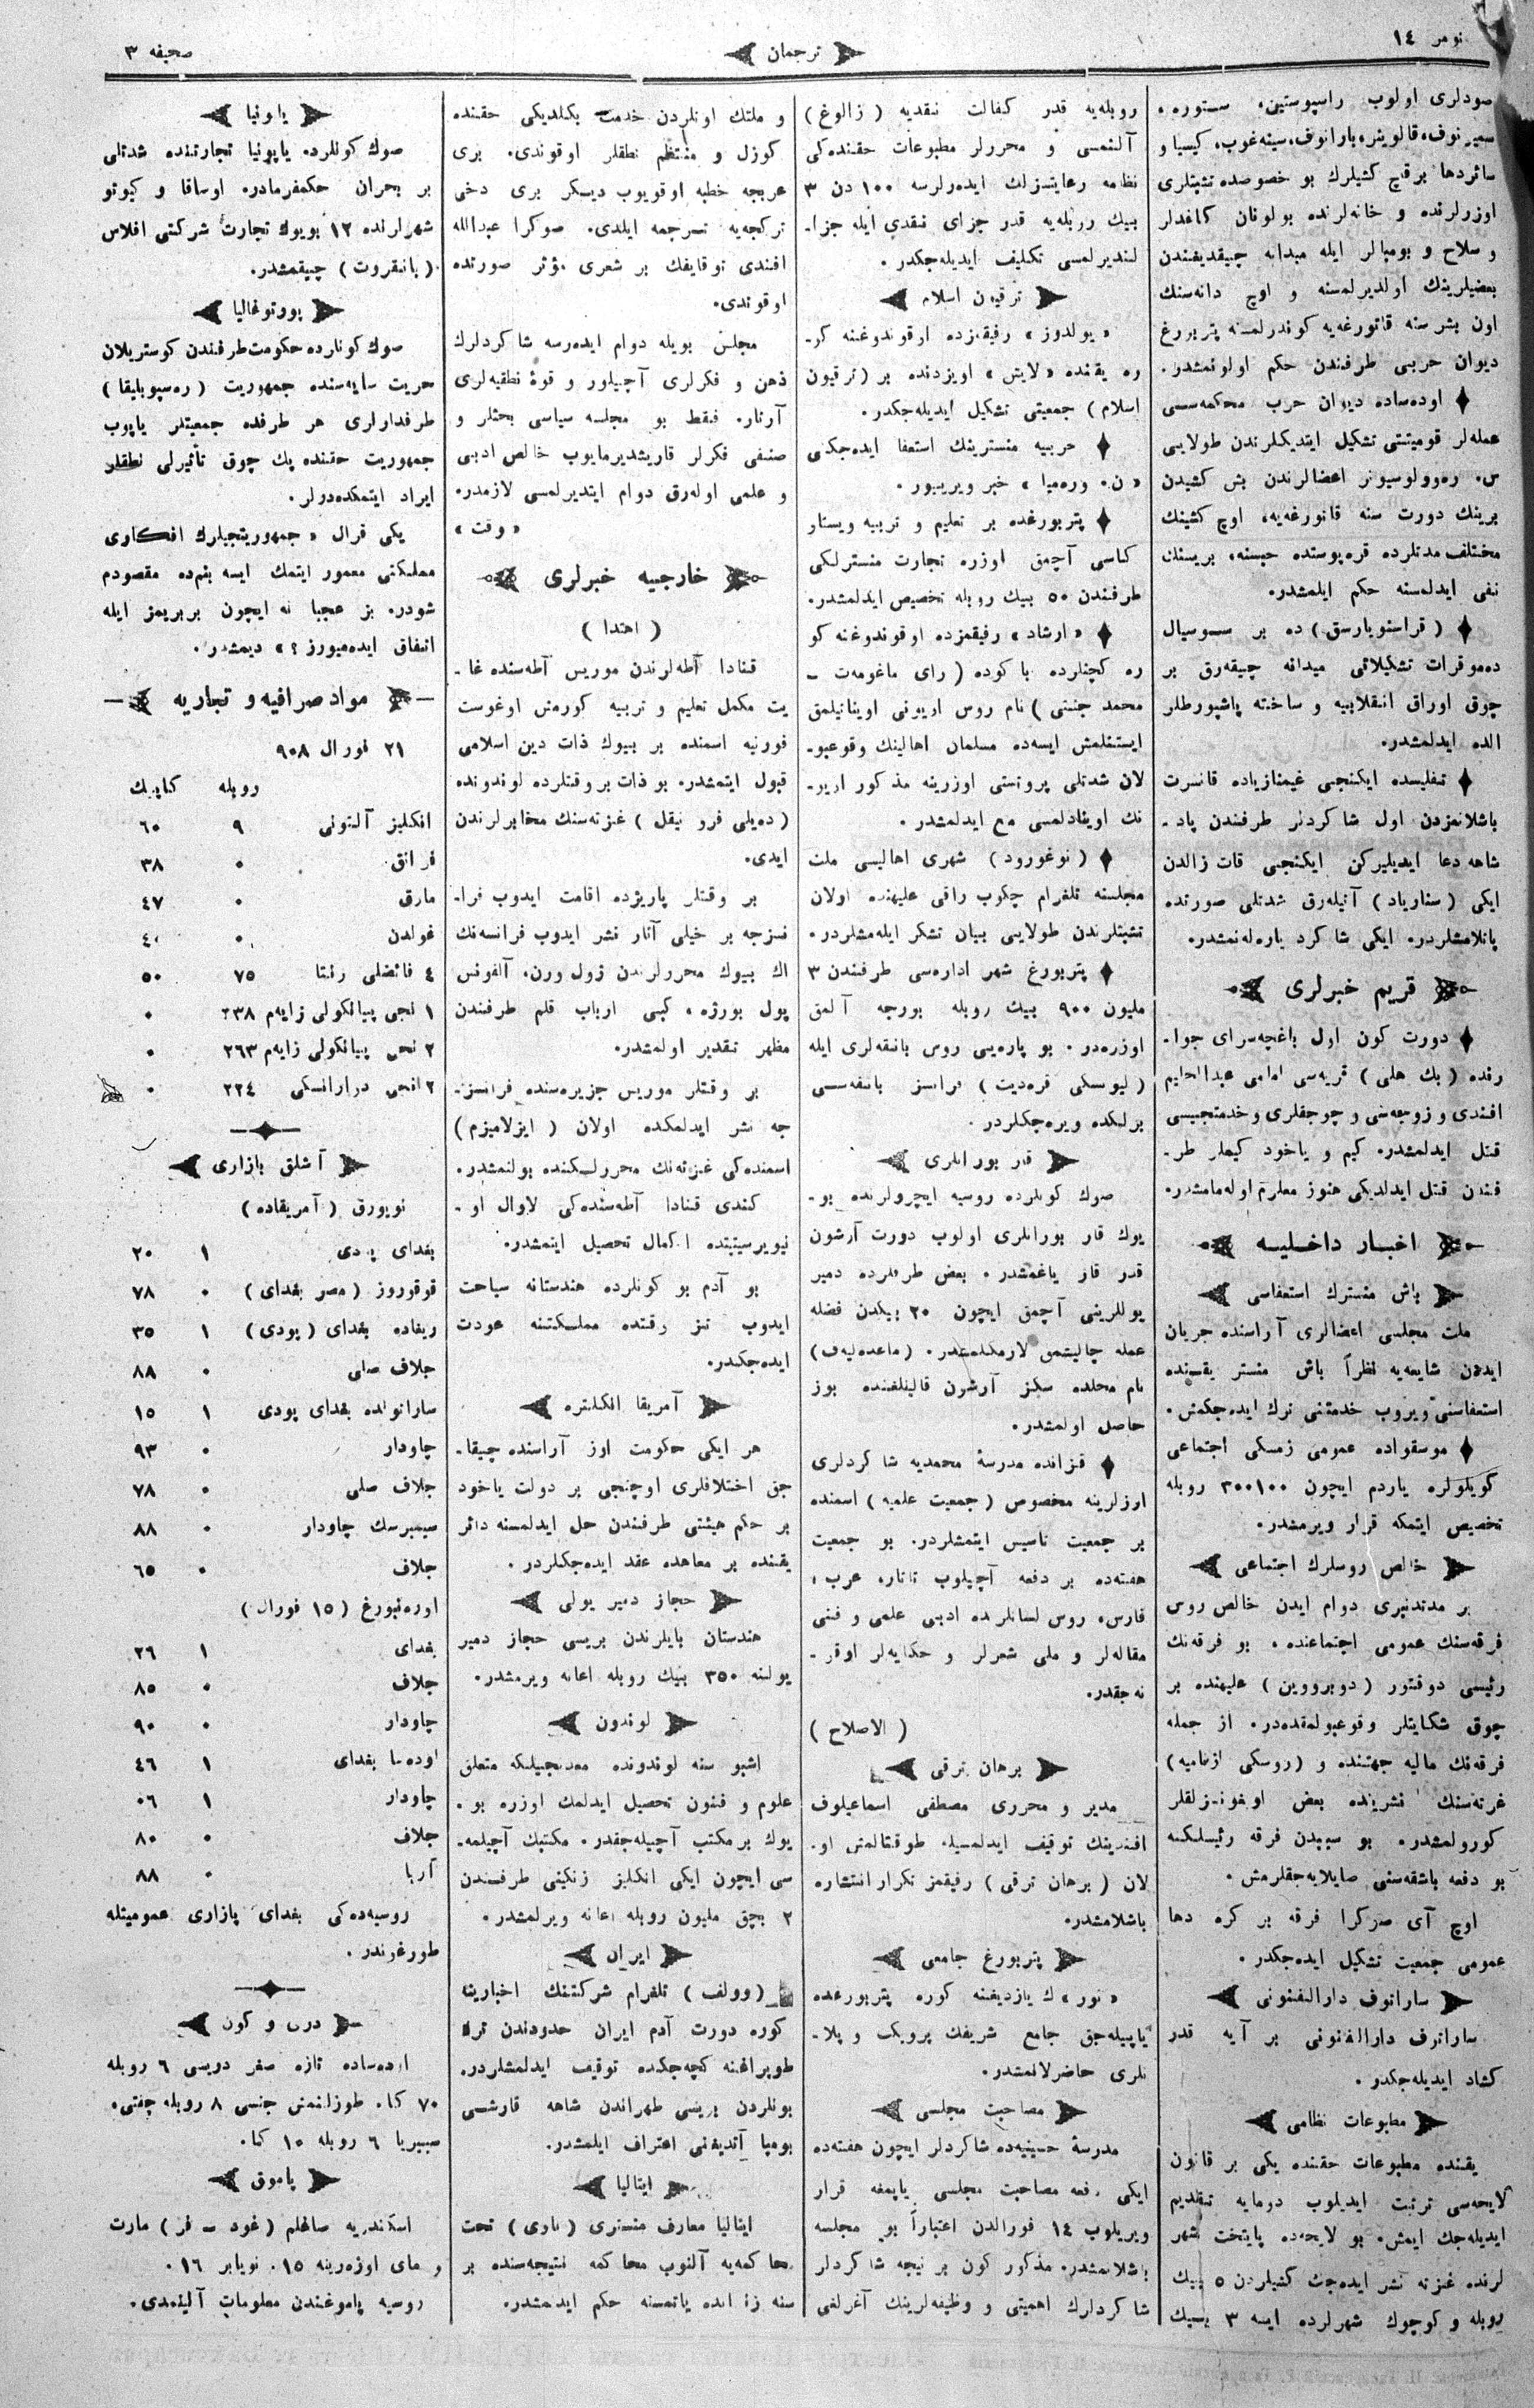 نومر ١٤
ترجمان
صحیفه ٣
صودلری اولوب راسپوستین، ستوره،
سمیرنوف، قالوینر، بارانوف، سینه‌غوب، کیسیا و
سائردها برقچ کشیلرك بو خصوصده تشبثلری
اوزرلرنده و خانه‌لرنده بولونان کاغدلر
و سلاح و بومبالر ایله میدانه چیقدیغندن
بعضیلرینك اولدیرلمسنه و اوچ دانه‌سنك
اون بشر سنه قاتورغه‌یه کوندرلمسنه پتربورغ
دیوان حربی طرفندن حکم اولونمشدر.
اوده‌ساده دیوان حرب محکمه‌سی
عمله‌لر قومیتتی تشکیل ایتدیکلرندن طولایی
س. ره‌وولوسیونر اعضالرندن بش کشیدن
برینك دورت سنه قاتورغه‌یه، اوچ کشینك
مختلف مدتلرده قره‌پوستده حبسنه، بریسنك
نفی ایدلمسنه حکم ایلمشدر.
( قراسنویارسق ) ده بر سوسیال
ده‌موقرات تشکیلاتی میدانه چیقه‌رق بر
چوق اوراق انقلابیه و ساخته پاشپورطلر
الده ایدلمشدر.
تفلیسده ایکنجی غیمنازیاده قانسرت
باشلانمزدن اول شاکردلر طرفندن پاد-
شاهه دعا ایدیلیرکن ایکنجی قات زالدن
ایکی ( سناریاد ) آتیله‌رق شدتلی صورتده
پاتلامشلردر. ایکی شاکرد یاره‌له‌نمشدر.
قریم خبرلری
دورت کون اول باغچه‌سرای جوا-
رنده ( بك هلی ) قریه‌سی امامی عبدالحلیم
افندی و زوجه‌سی و چوجقلری و خدمتجیسی
قتل ایدلمشدر. کیم و یاخود کیملر طر-
فندن قتل ایدلدیکی هنوز معلوم اوله‌مامشدر.
اخبار داخلیه
باش منسترك استعفاسی
ملت مجلسی اعضالری آراسنده جریان
ایدن شایعه‌یه نظراً باش منستر یقینده
استعفاسنی ویروب خدمتنی ترك ایده‌جکمش.
موسقواده عمومی زمسکی اجتماعی
کویلولره یاردم ایچون ٣٠٠١٠٠ روبله
تخصیص ایتمکه قرار ویرمشدر.
خالص روسلرك اجتماعی
بر مدتدنبری دوام ایدن خالص روس
فرقه‌سنك عمومی اجتماعنده، بو فرقه‌نك
رئیسی دوقتور ( دوبرووین ) علیهنده بر
چوق شکایتلر وقوعبولمقده‌در. از جمله
فرقه‌نك مالیه جهتنده و (روسکی ازنامیه)
غزته‌سنك نشرینده بعض اویغونزلقلر
کورولمشدر. بو سببدن فرقه رئیسلکنه
بو دفعه باشقه‌سنی صایلایه‌جقلرمش.
اوچ آی صوکرا فرقه بر کره دها
عمومی جمعیت تشکیل ایده‌جکدر.
ساراتوف دارالفنونی
ساراتوف دارالفنونی بر آیه قدر
کشاد ایدیله‌جکدر.
مطبوعات نظامی
یقنده مطبوعات حقنده یکی بر قانون
لایحه‌سی ترتبت ایدیلوب دومایه تقدیم
ایدیله‌جك ایمش. بو لایحه‌ده پایتخت شهر
لرنده غزته نشر ایده‌جك کشیلردن ٥ بیك
روبله و کوچوك شهرلرده ایسه ٣ بیك
روبله‌یه قدر کفالت نقدیه ( زالوغ )
آلنمسی و محررلر مطبوعات حقنده‌کی
نظامه رعایتسزلك ایدرلرسه ١٠٠ دن ٣
بیك روبله‌یه قدر جزای نقدی ایله جزا-
لندیرلمسی تکلیف ایدیله‌جکدر.
ترقیون اسلام
« یولدوز » رفیقمزده اوقوندوغنه کو-
ره یقنده «لایش» اویزدنده بر (ترقیون
اسلام ) جمعیتی تشکیل ایدیله‌جکدر.
حربیه منسترینك استعفا ایده‌جکی
« ن. وره‌میا » خبر ویرییور.
پتربورغده بر تعلیم و تربیه ویستار
کاسی آچمق اوزره تجارت منسترلکی
طرفندن ٥٠ بیك روبله تخصیص ایدلمشدر.
« ارشاد » رفیقمزده اوقوندوغنه کو
ره کچنلرده باکوده ( رای ماغومه‌ت -
محمد جنتی ) نام روس اویونی اوینانیلمق
ایستنلمش ایسه‌ده مسلمان اهالینك وقوعبو-
لان شدتلی پروتستی اوزرینه مذکور اویو-
نك اوینادلمسی منع ایدلمشدر.
( نوغورود ) شهری اهالیسی ملت
مجلسنه تلغرام چکوب راقی علیهنده اولان
تشبثلرندن طولایی بیان تشکر ایله‌مشلردر.
پتربورغ شهر اداره‌سی طرفندن ٣
ملیون ٩٠٠ بیك روبله بورجه آلمق
اوزره‌در. بو پاره‌یی روس بانقه‌لری ایله
( لیوسکی قره‌دیت ) فرانسز بانقه‌سی
برلکده ویره‌جکلردر.
قار بورانلری
صوك کونلرده روسیه ایچرولرنده بو-
یوك قار بورانلری اولوب دورت آرشون
قدر قار یاغمشدر. بعض طرفلرده دمیر
یوللرینی آچمق ایچون ٢٠ بیکدن فضله
عمله چالیشمق لازمکلمشدر. (ماعده‌لیه‌ف)
نام محلده سکز آرشون قالینلغنده بوز
حاصل اولمشدر.
قزانده مدرسهٔ محمدیه شاکردلری
اوزلرینه مخصوص ( جمعیت علمیه ) اسمنده
بر جمعیت تاسیس ایتمشلردر. بو جمعیت
هفته‌ده بر دفعه آچیلوب تاتار، عرب،
فارس، روس لسانلرده ادبی علمی و فنی
مقاله‌لر و ملی شعرلر و حکایه‌لر اوقو-
نه‌جقدر.
( الاصلاح )
برهان ترقی
مدیر و محرری مصطفی اسماعیلوف
افندینك توقیف ایدلمسیله طوقتالمش او-
لان ( برهان ترقی ) رفیقمز تکرار انتشاره
باشلامشدر.
پتربورغ جامعی
« نور » ك یازدیغنه کوره پتربورغده
یاپیله‌جق جامع شریفك پرویك و پلا-
نلری حاضرلانمشدر.
مصاحبت مجلسی
مدرسهٔ حسینیه‌ده شاکردلر ایچون هفته‌ده
ایکی دفعه مصاحبت مجلسی یاپمغه قرار
ویریلوب ١٤ فورالدن اعتباراً بو مجلسه
باشلانمشدر. مذکور کون بر نیجه شاکردلر
شاکردلرك اهمیتی و وظیفه‌لرینك آغرلغی
و ملتك اونلردن خدمت بکلدیکی حقنده
کوزل و منتظم نطقلر اوقوندی. بری
عربجه خطبه اوقویوب دیگر بری دخی
ترکجه‌یه ترجمه ایلدی. صوکرا عبدالله
افندی توقایفك بر شعری مؤثر صورتده
اوقوندی.
مجلس بویله دوام ایده‌رسه شاکردلرك
ذهن و فکرلری آچیلور و قوهٔ نطقیه‌لری
آرتار. فقط بو مجلسه سیاسی بحثلر و
صنفی فکرلر قاریشدیرمایوب خالص ادبی
و علمی اوله‌رق دوام ایتدیرلمسی لازمدر.
« وقت »
خارجیه خبرلری
( اهتدا )
قنادا آطه‌لرندن موریس آطه‌سنده غا-
یت مکمل تعلیم و تربیه کورمش اوغوست
فورنیه اسمنده بر بیوك ذات دین اسلامی
قبول ایتمشدر. بو ذات بروقتلرده لوندونده
(ده‌یلی فرو نیقل ) غزته‌سنك مخابرلرندن
ایدی.
بر وقتلر پاریژده اقامت ایدوب فرا-
نسزجه بر خیلی آثار نشر ایدوب فرانسه‌نك
اك بیوك محررلرندن ژول ورن، آلفونس
پول بورژه، کبی ارباب قلم طرفندن
مظهر تقدیر اولمشدر.
بر وقتلر موریس جزیره‌سنده فرانسز-
جه نشر ایدلمکده اولان ( ایزلامیزم )
اسمنده‌کی غزته‌نك محررلکنده بولنمشدر.
کندی قنادا آطه‌سنده‌کی لاوال او-
نیورسیتتده اکمال تحصیل ایتمشدر.
بو آدم بو کونلرده هندستانه سیاحت
ایدوب تیز وقتده مملکتنه عودت
ایده‌جکدر.
آمریقا انکلتره
هر ایکی حکومت اوز آراسنده چیقا-
جق اختلافلری اوچنجی بر دولت یاخود
بر حکم هیئتی طرفندن حل ایدلمسنه دائر
یقینده بر معاهده عقد ایده‌جکلردر.
حجاز دمیر یولی
هندستان بایلرندن بریسی حجاز دمیر
یولنه ٣٥٠ بیك روبله اعانه ویرمشدر.
لوندون
اشبو سنه لوندونده معدنجیلکه متعلق
علوم و فنون تحصیل ایدلمك اوزره بو-
یوك برمکتب آچیله‌جقدر. مکتبك آچیلمه-
سی ایچون ایکی انکلیز زنکینی طرفندن
٢ بچق ملیون روبله اعانه ویرلمشدر.
ایران
(وولف) تلغرام شرکتنك اخبارینا
کوره دورت آدم ایران حدودندن ترك
طوپراغنه کچه‌جکده توقیف ایدلمشلردر.
بونلردن بریسی طهراندن شاهه قارشی
بومبا آتدیغنی اعتراف ایلمشدر.
ایتالیا
ایتالیا معارف منستری (نازی) تحت
محاکمه‌یه آلنوب محاکمه نتیجه‌سنده بر
سنه زندانده یاتمسنه حکم ایدلمشدر.
یاپونیا
صوك کونلرده یاپونیا تجارتنده شدتلی
بر بحران حکمفرمادر. اوساقا و کیوتو
شهرلرنده ١٢ بویوك تجارت شرکتی افلاس
( بانقروت ) چیقمشدر.
پورتوغالیا
صوك کونلرده حکومت طرفندن کوستریلان
حریت سایه‌سنده جمهوریت (ره‌سپوبلیقا)
طرفدارلری هر طرفده جمعیتلر یاپوب
جمهوریت حقنده پك چوق تأثیرلی نطقلر
ایراد ایتمکده‌درلر.
یکی قرال « جمهوریتجیلرك افکاری
مملکتی معمور ایتمك ایسه بنم‌ده مقصودم
شودر. بز عجبا نه ایچون بربریمز ایله
اتفاق ایده‌میورز ؟ » دیمشدر.
مواد صرافیه و تجاریه
٢١ فورال ٩٠٨
روبله کاپیك
انکلیز آلتونی ٩ ٦٠
فرانق ٠ ٣٨
مارق ٠ ٤٧
غولدن ٠ ٤٠
٤ فائضلی رنتا ٧٥ ٥٠
١ نجی پیانکولی زایه‌م ٣٣٨ ٠
٢ نجی پیانکولی زایه‌م ٢٦٣ ٠
٢ انجی دورانسکی ٢٢٤ ٠
آشلق بازاری
نویورق ( آمریقاده )
بغدای پودی ١ ٢٠
قوقوروز ( مصر بغدای ) ٠ ٧٨
ریغاده بغدای ( پودی ) ١ ٣٥
جلاف صلی ٠ ٨٨
ساراتوفده بغدای پودی ١ ١٥
چاودار ٠ ٩٣
جلاف صلی ٠ ٧٨
سیمبرسك چاودار ٠ ٨٨
جلاف ٠ ٦٥
اوره‌نبورغ ( ١٥ فورال )
بغدای ١ ٢٦
جلاف ٠ ٨٥
چاودار ٠ ٩٠
اوده‌سا بغدای ١ ٤٦
چاودار ١ ٠٦
جلاف ٠ ٨٠
آرپا ٠ ٨٨
روسیه‌ده‌کی بغدای پازاری عمومیتله
طورغوندر.
دری و کون
اوده‌ساده تازه صغر دریسی ٦ روبله
٧٠ کا. طوزلنمش جنسی ٨ روبله چفتی.
سیبیریا ٦ روبله ١٠ کا.
پاموق
اسکندریه ساغلم ( غود - فر ) مارت
و مای اوزه‌رینه ١٥. نویابر ١٦.
روسیه پاموغندن معلومات آلینمدی.